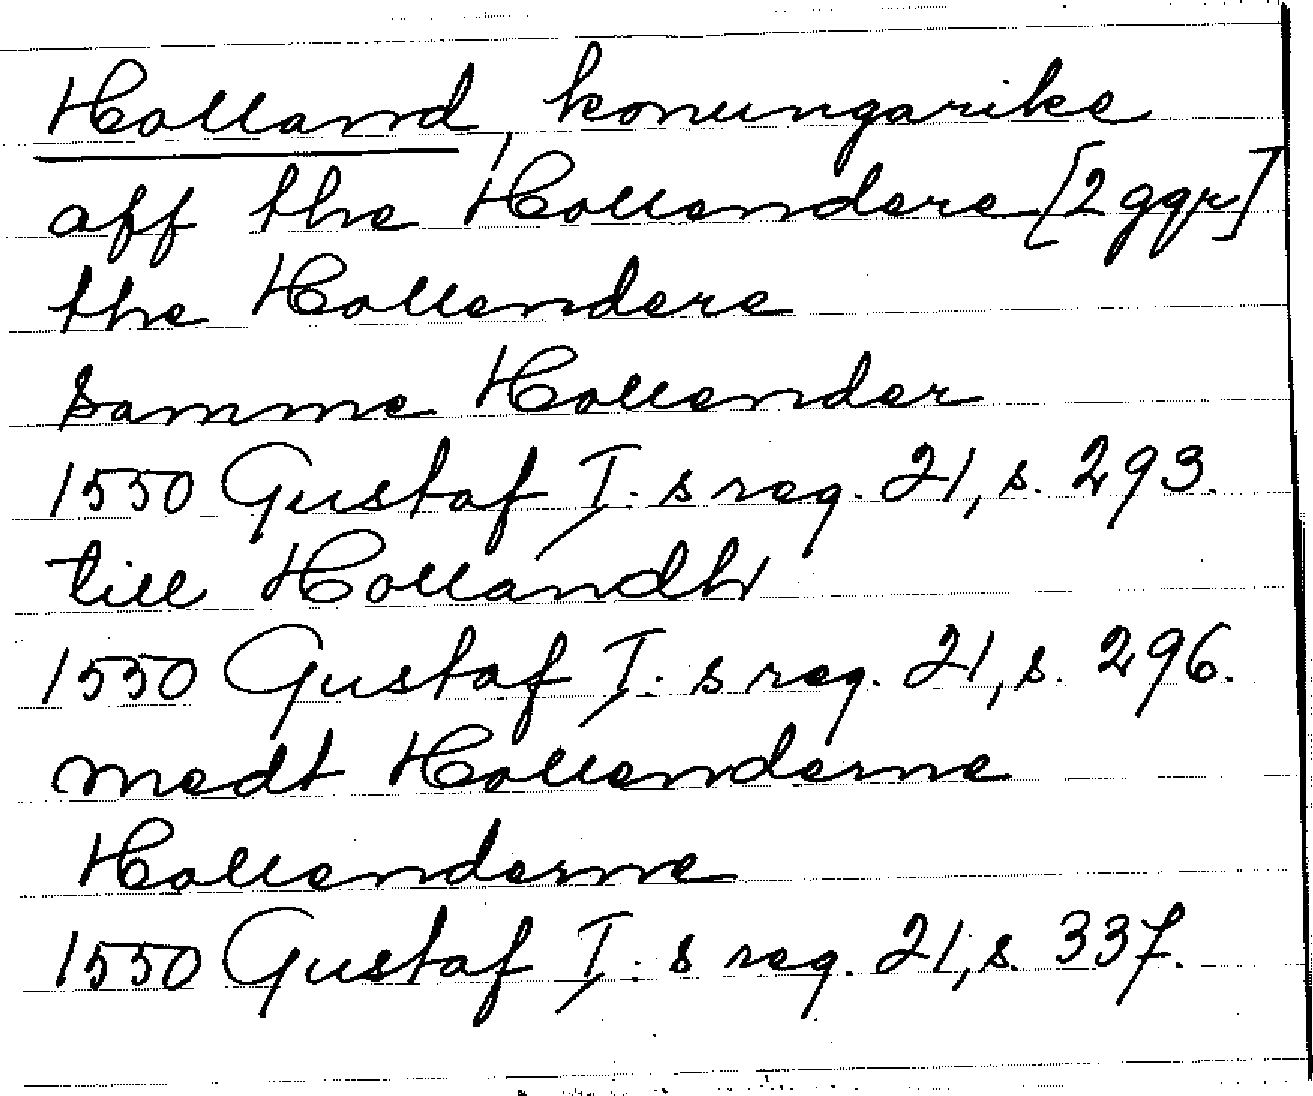 Holland, konungarike
aff the Hollendere [2 ggr]
the Hollendere
samme Hollender
1550 Gustaf I:s reg. 21, s. 293.
till Hollandh
1550 Gustaf I:s reg. 21, s. 296.
medt Hollenderne
Hollenderne
1550 Gustaf I:s reg. 21, s. 337.